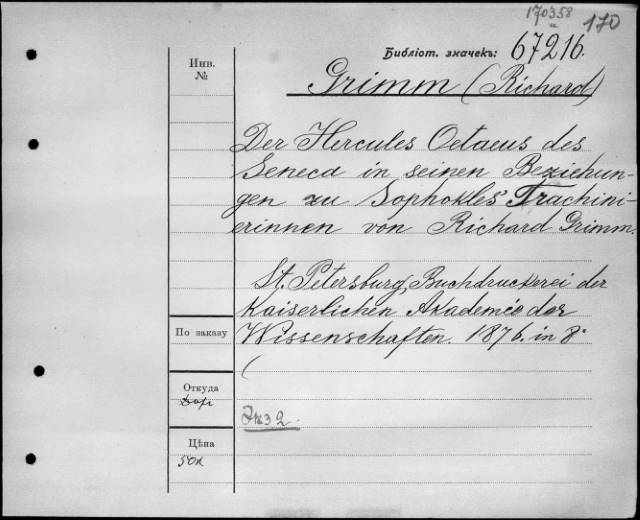 170358
170
Библіот. значекъ: 67216.
Инв.
№
Grimm (Richard)
Der Hercules Oetaeus des
Seneca in seinen Beziehun-
gen zu Sophokles' Trachini-
erinnen von Richard Grimm.
St. Petersburg, Buchdruckerei der
Kaiserlichen Akademie der
Wissenschaften. 1876. in 8°
(
По заказу
Откуда
Экз 2.
Цѣна
50к